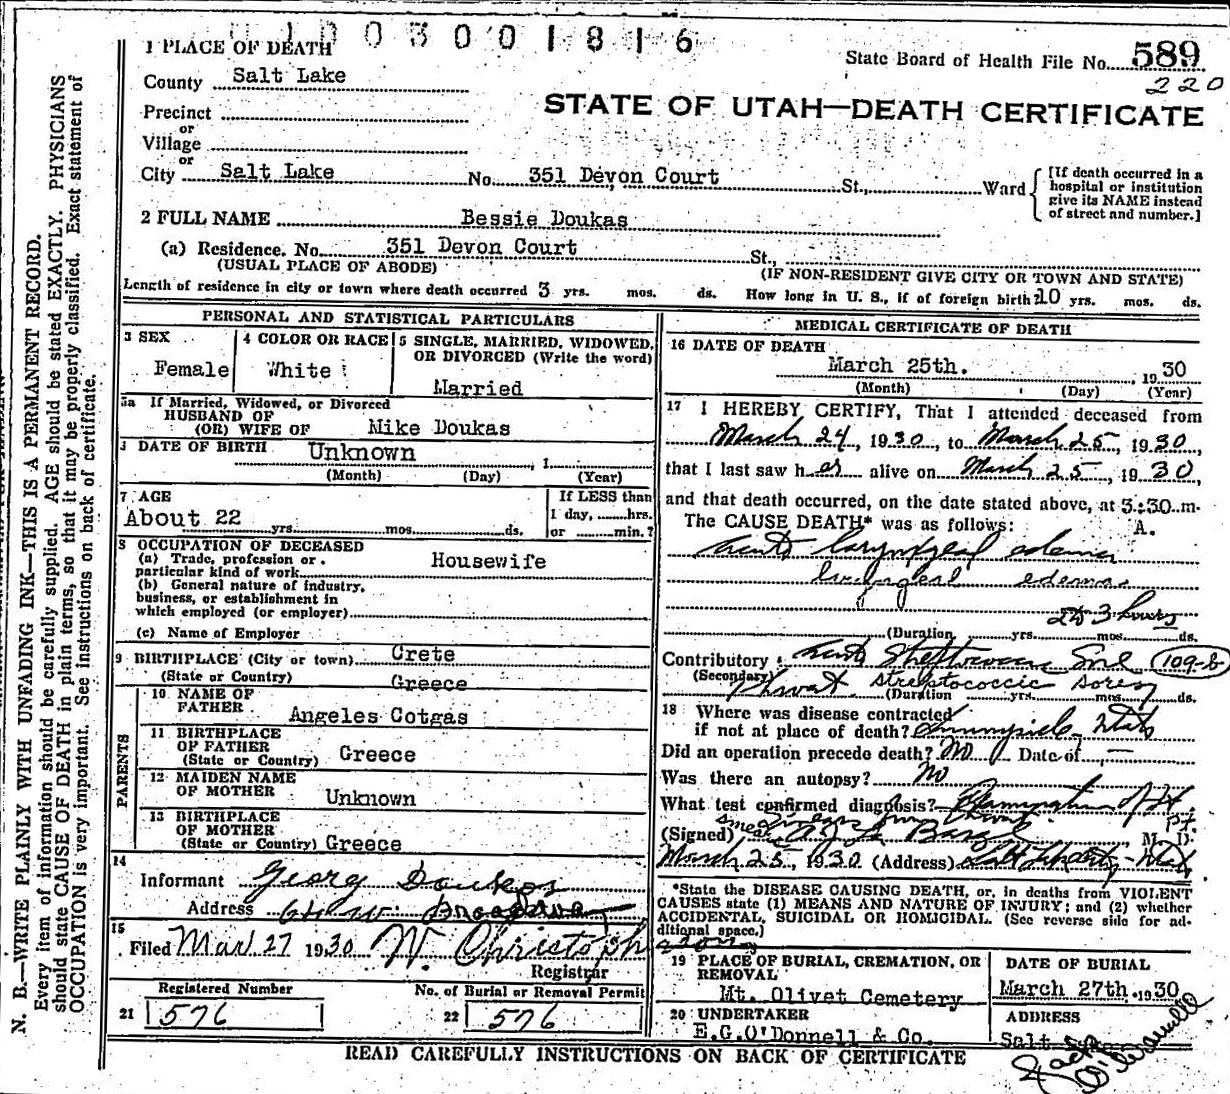 0 3 0 0 1 8 1 6
1 PLACE OF DEATH
State Board of Health File No. 589
220
County Salt Lake
STATE OF UTAH—DEATH CERTIFICATE
Precinct
or
Village
or
City Salt Lake No. 351 Devon Court St., Ward
[If death occurred in a hospital or institution give its NAME instead of street and number.]
2 FULL NAME Bessie Doukas
(a) Residence. No. 351 Devon Court St.,
(USUAL PLACE OF ABODE) (IF NON-RESIDENT GIVE CITY OR TOWN AND STATE)
Length of residence in city or town where death occurred 3 yrs. mos. ds. How long in U. S., if of foreign birth? 10 yrs. mos. ds.
PERSONAL AND STATISTICAL PARTICULARS
3 SEX
Female
4 COLOR OR RACE
White
5 SINGLE, MARRIED, WIDOWED,
OR DIVORCED (Write the word)
Married
5a If Married, Widowed, or Divorced
HUSBAND OF
(OR) WIFE OF Mike Doukas
DATE OF BIRTH Unknown , 1
(Month) (Day) (Year)
7 AGE
About 22 yrs. mos. ds.
If LESS than
1 day, hrs.
or min.?
8 OCCUPATION OF DECEASED
(a) Trade, profession or
particular kind of work Housewife
(b) General nature of industry,
business, or establishment in
which employed (or employer)
(c) Name of Employer
9 BIRTHPLACE (City or town) Crete
(State or Country) Greece
PARENTS
10 NAME OF
FATHER Angeles Cotgas
11 BIRTHPLACE
OF FATHER
(State or Country) Greece
12 MAIDEN NAME
OF MOTHER Unknown
13 BIRTHPLACE
OF MOTHER
(State or Country) Greece
14
Informant Georg Doukas
Address W. Broadway
15
Filed Mar 27 1930 W. Christoph
erson
Registrar
Registered Number
21 576
No. of Burial or Removal Permit
22 576
MEDICAL CERTIFICATE OF DEATH
16 DATE OF DEATH
March 25th. , 1930
(Month) (Day) (Year)
17 I HEREBY CERTIFY, That I attended deceased from
March 24, 1930, to March 25, 1930,
that I last saw her alive on March 25, 1930,
and that death occurred, on the date stated above, at 3:30 m.
The CAUSE DEATH* was as follows: A.
Acute laryngeal edema
laryngeal edema
3 hours
(Duration yrs. mos. ds.
Contributory Acute Streptococcic Sore 109-b
(Secondary) throat streptococcic sore
(Duration yrs. mos. ds.
18 Where was disease contracted
if not at place of death? Sunnyside Utah
Did an operation precede death? No Date of —
Was there an autopsy? No
What test confirmed diagnosis? Examination of
smears from throat
(Signed) M. D.
March 25, 1930 (Address) Salt Lake City - Utah
*State the DISEASE CAUSING DEATH, or, in deaths from VIOLENT
CAUSES state (1) MEANS AND NATURE OF INJURY; and (2) whether
ACCIDENTAL, SUICIDAL OR HOMICIDAL. (See reverse side for ad-
ditional space.)
19 PLACE OF BURIAL, CREMATION, OR
REMOVAL
Mt. Olivet Cemetery
DATE OF BURIAL
March 27th. 1930
20 UNDERTAKER
E.G.O'Donnell & Co.
ADDRESS
Salt Lake
READ CAREFULLY INSTRUCTIONS ON BACK OF CERTIFICATE
N. B.—WRITE PLAINLY WITH UNFADING INK—THIS IS A PERMANENT RECORD.
Every item of information should be carefully supplied. AGE should be stated EXACTLY. PHYSICIANS
should state CAUSE OF DEATH in plain terms, so that it may be properly classified. Exact statement of
OCCUPATION is very important. See instructions on back of certificate.